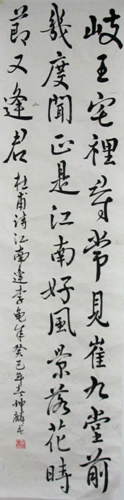 岐王宅裡尋常見崔九堂前
幾度聞正是江南好風景落花時
節又逢君 杜甫詩江南逢李龜年癸巳年